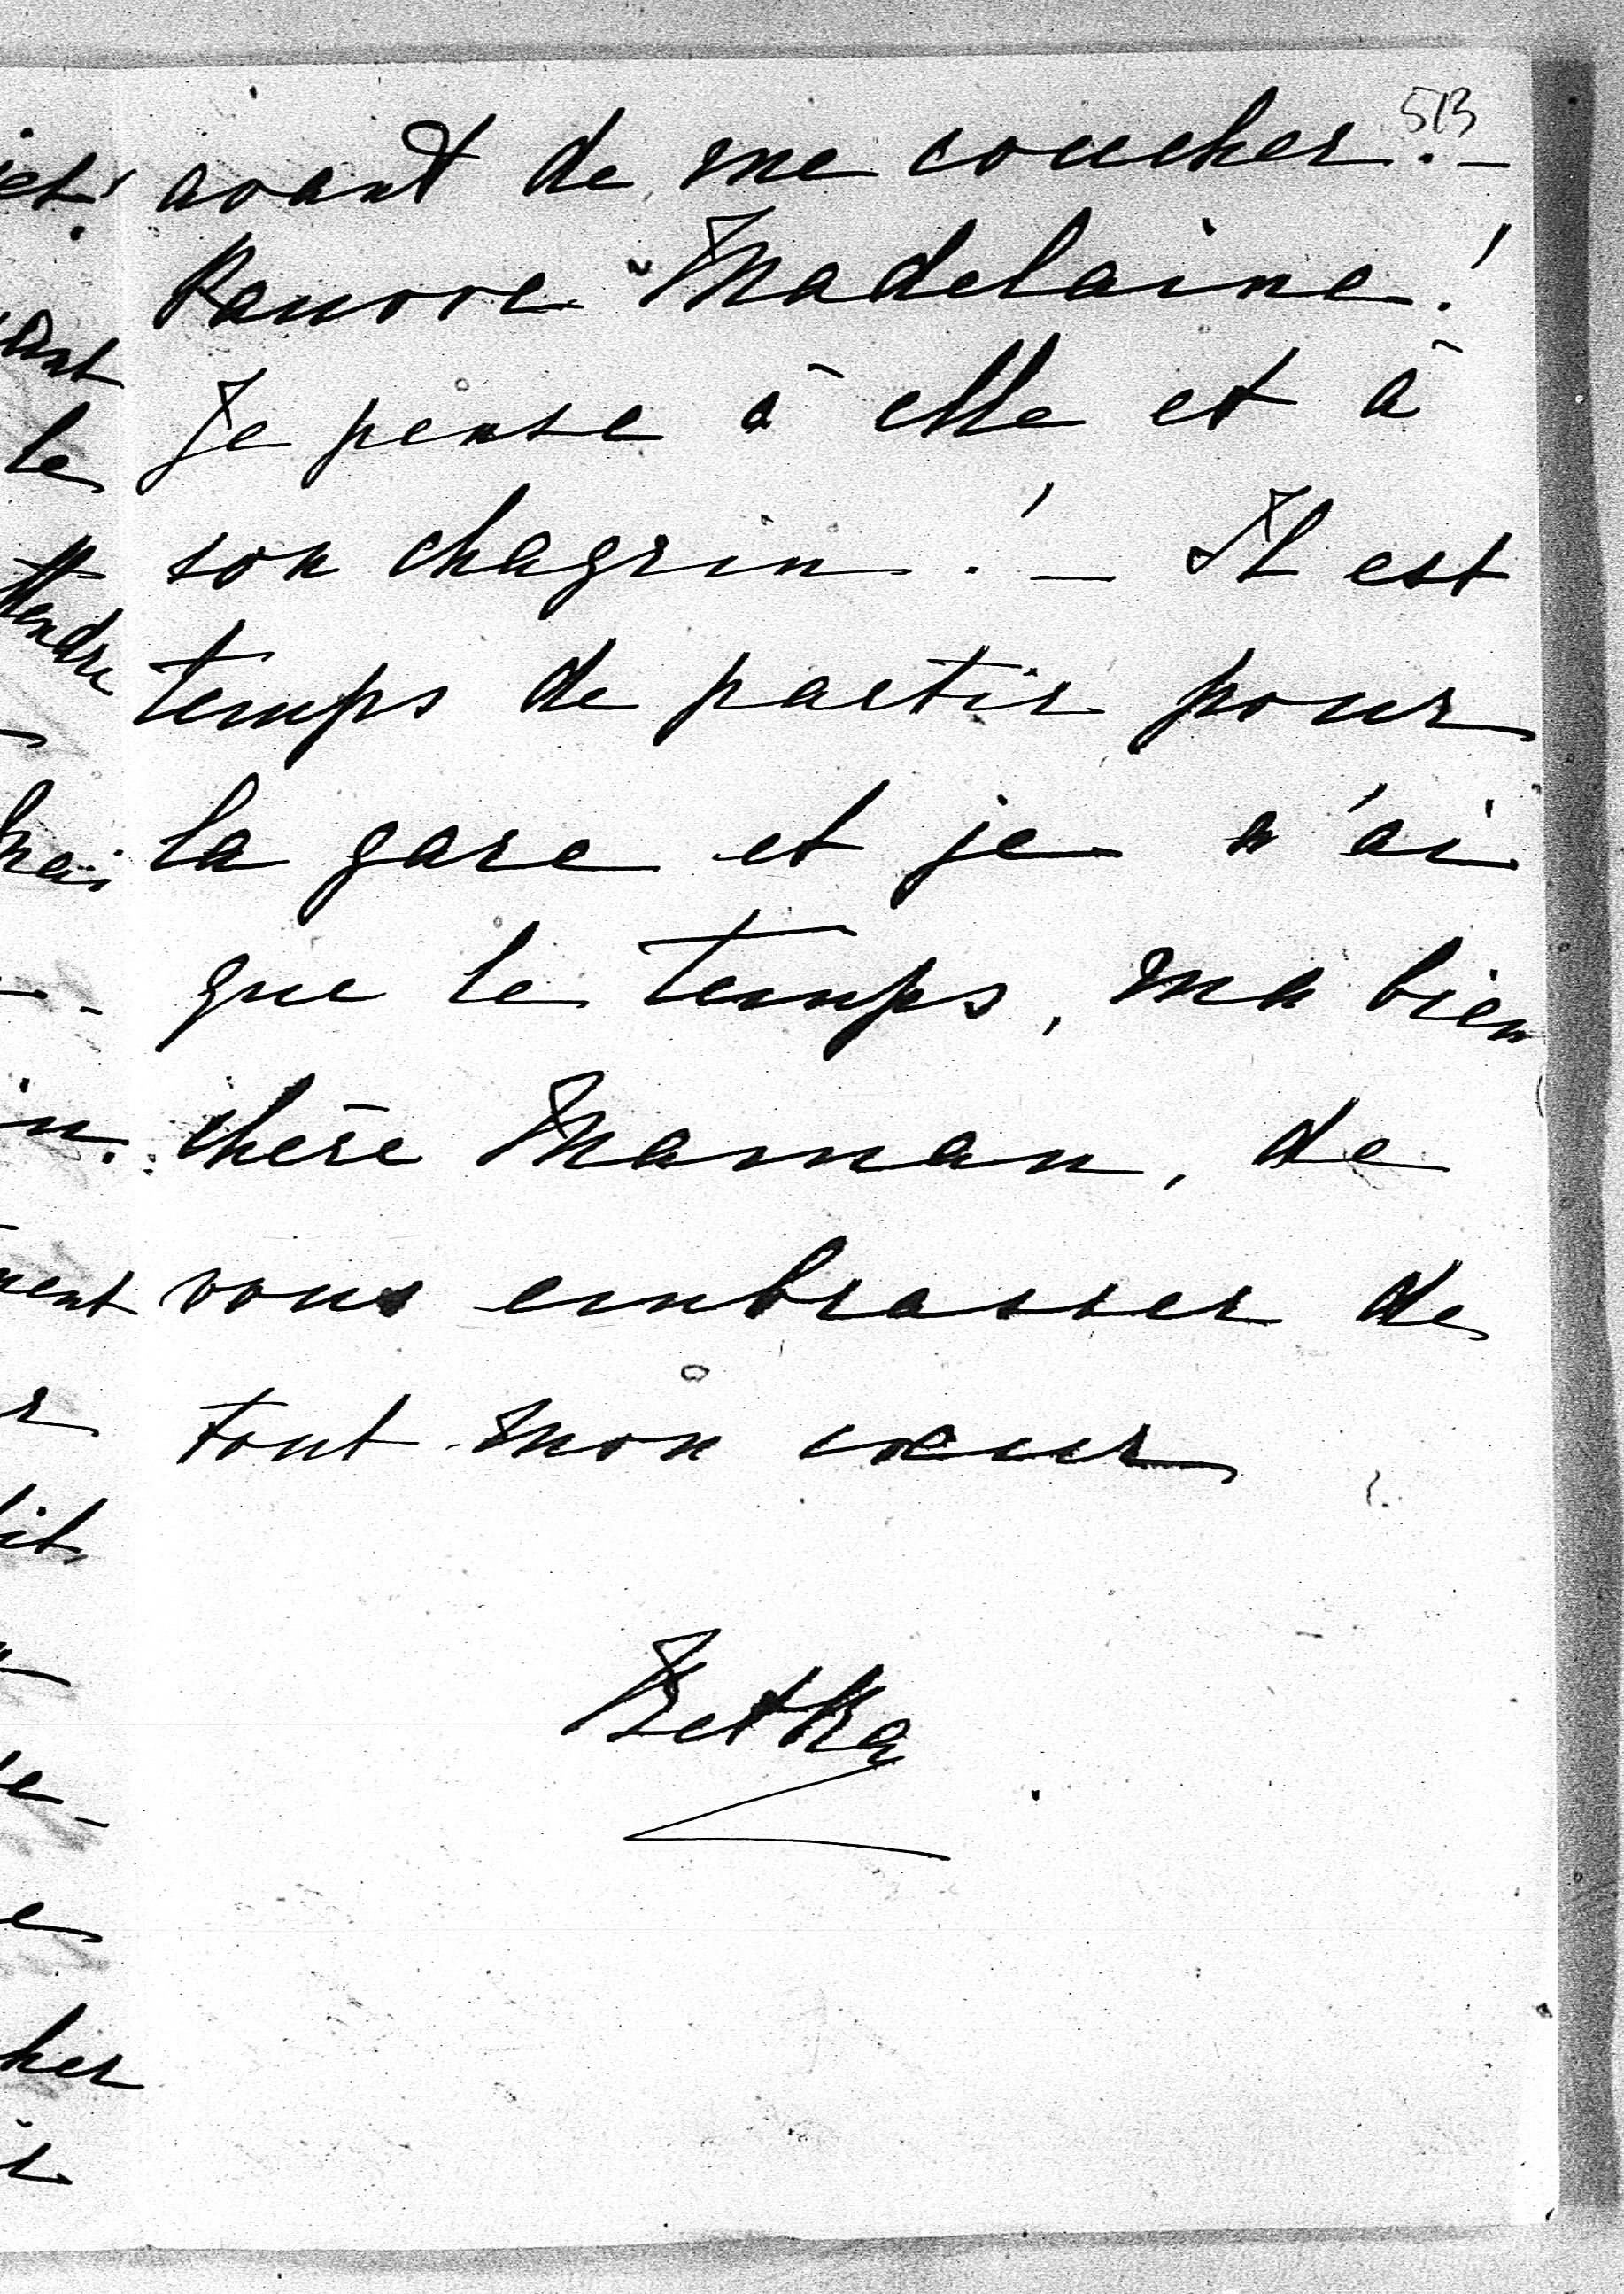 513
avant de me coucher. –
Pauvre Madelaine!
Je pense à elle et à
son chagrin! – Il est
temps de partir pour
la gare et je n'ai
que le temps, ma bien
chère Maman, de
vous embrasser de
tout mon cœur
Betka
ant
le
endre
in.
ment
r
it
e
her